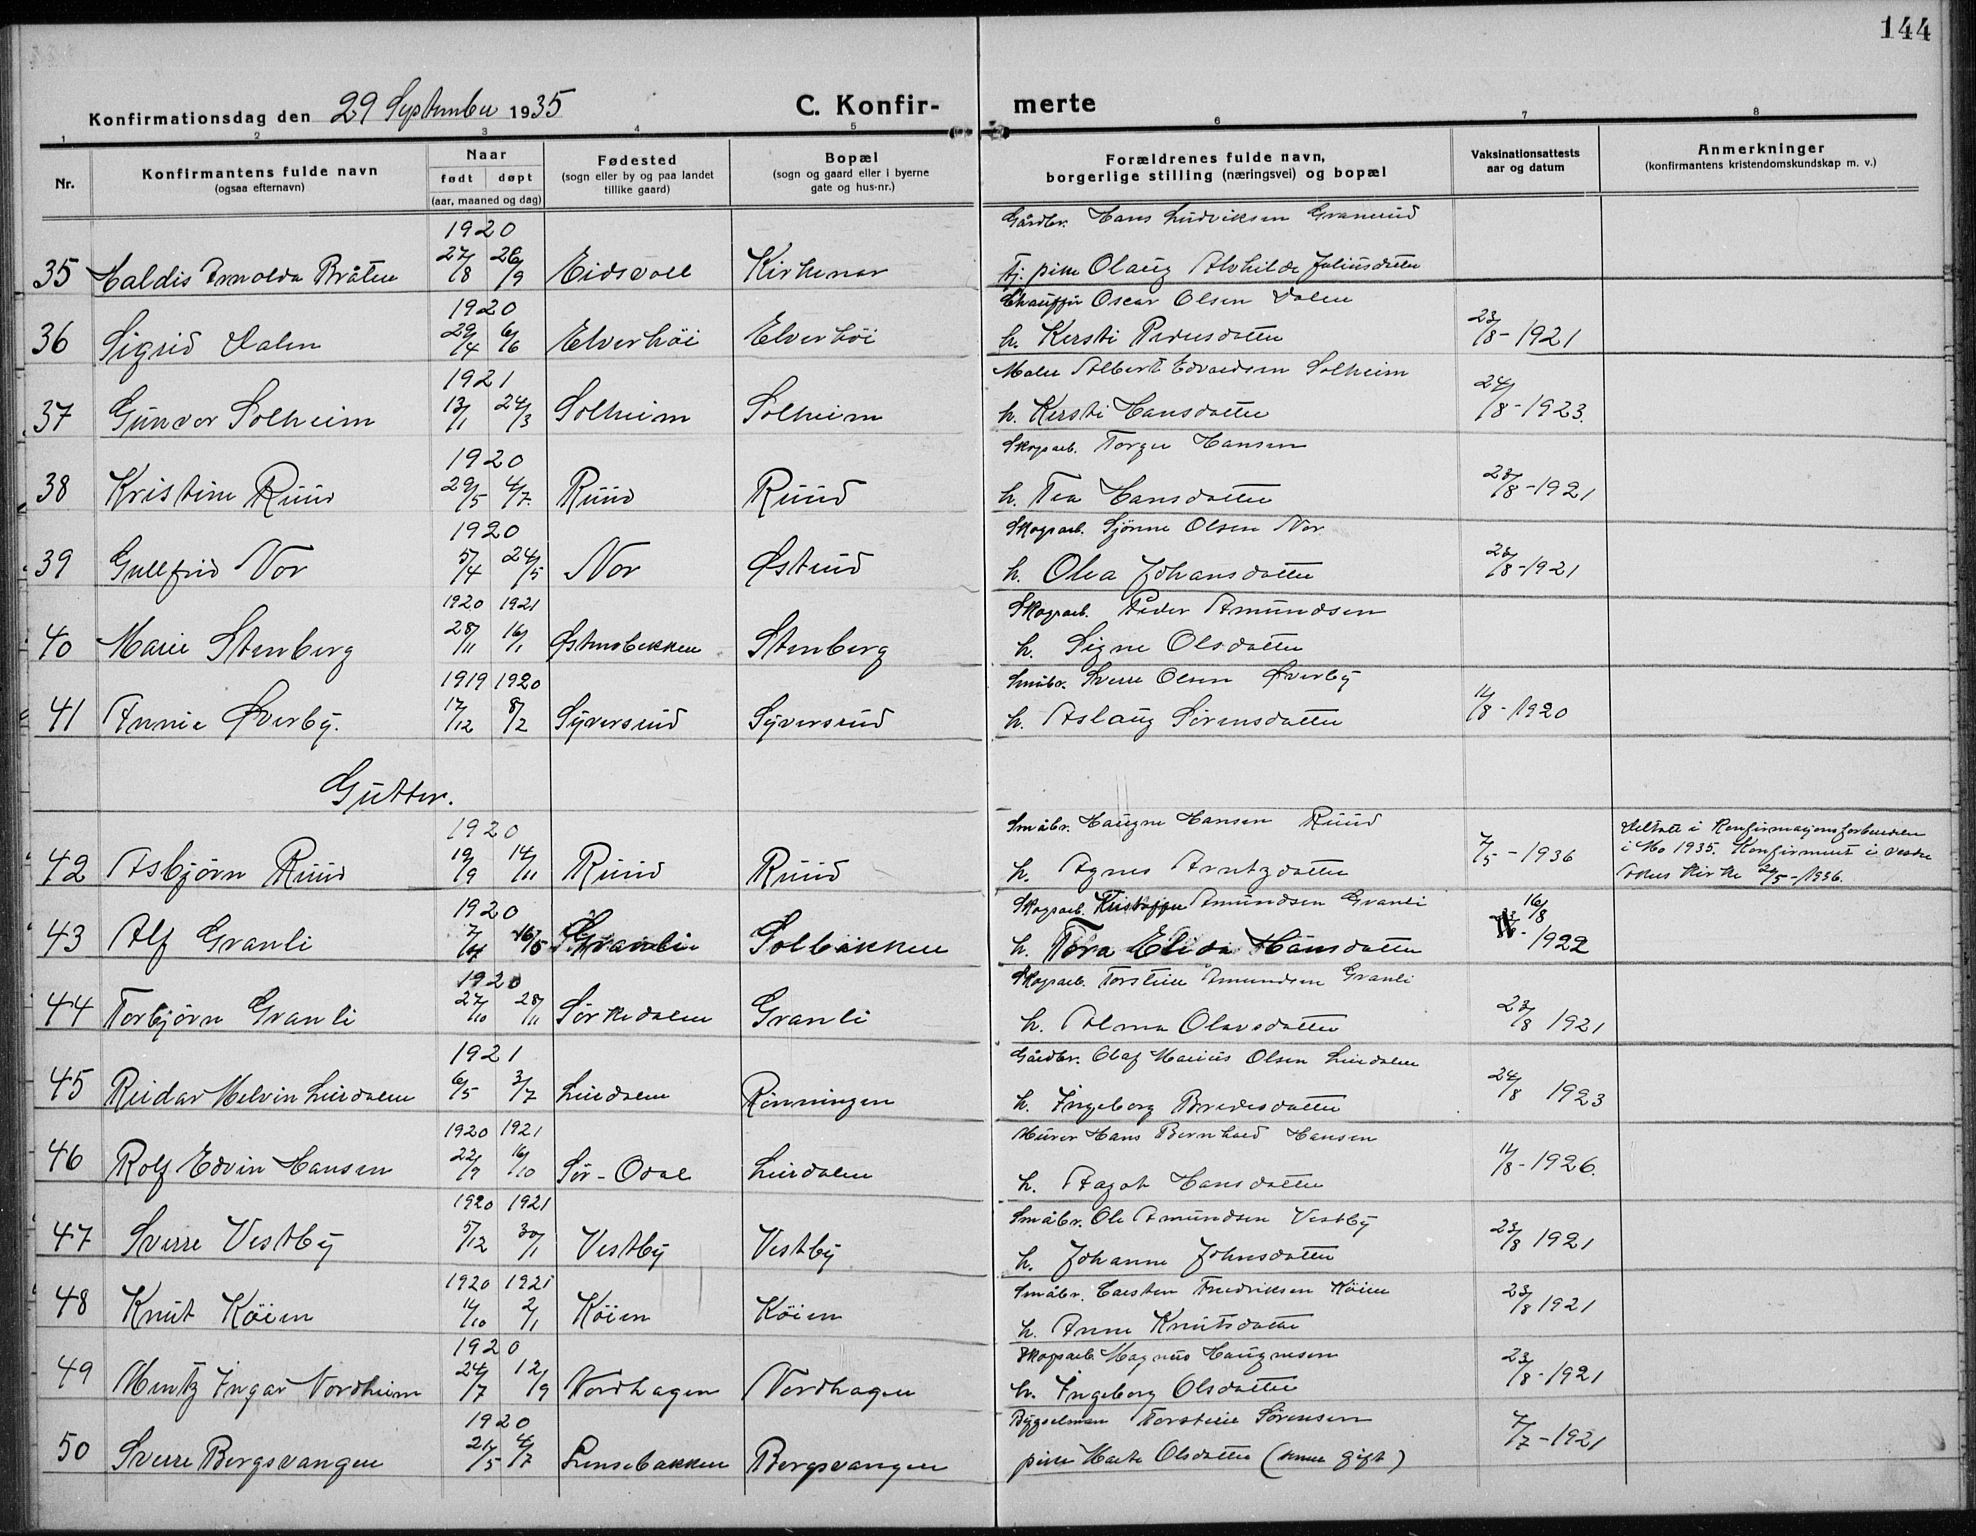 144
Konfirmationsdag den 29 September 1935
C. Konfir- merte
1 2 3 4 5 6 7 8
Nr.
Konfirmantens fulde navn
(ogsaa efternavn)
Naar
født døpt
(aar, maaned og dag)
Fødested
(sogn eller by og paa landet
tillike gaard)
Bopæl
(sogn og gaard eller i byerne
gate og hus-nr.)
Forældrenes fulde navn,
borgerlige stilling (næringsvei) og bopæl
Vaksinationsattests
aar og datum
Anmerkninger
(konfirmantens kristendomskundskap m. v.)
1920 Gårdbr. Hans Ludviksen Granerud
35 Haldis Arnolda Bråten 27/8 26/9 Eidsvoll Kirkenær Tj. pike Olaug Alvhilde Juliusdatter
1920 Chauffør Oscar Olsen Dalen
36 Sigrid Dalen 29/4 6/6 Elverhöi Elverhöi h. Kersti Pedersdatter 23/8 - 1921
1921 Maler Albert Edvardsen Solheim
37 Gunvor Solheim 13/1 24/3 Solheim Solheim h. Kersti Hansdatter 24/8 - 1923.
1920 Skogsarb. Torger Hansen
38 Kristine Ruud 29/5 4/7. Ruud Ruud h. Tea Hansdatter 23/8 - 1921
1920 Skogsarb. Sjønne Olsen Nor.
39 Gullfrid Nor 5/4 24/5 Nor Østrud h. Olea Johansdatter 23/8 - 1921
1920 1921 Skogsarb. Peder Amundsen
40 Marie Stenberg 28/11 16/1 Østensbekken Stenberg h. Signe Olsdatter
1919 1920 Småbr. Sverre Olsen Øverby
41 Annie Øverby. 17/12 8/2 Syversrud Syversrud h. Aslaug Sørensdatter 11/8 - 1920
Gutter.
1920 Småbr. Haugne Hansen Ruud
42 Asbjørn Ruud 19/9 14/11 Ruud Ruud h. Agnes Arntzdatter 7/5 - 1936
Deltatt i Konfirmasjonsforberedelse
i Mo 1935. Konfirmert i Vestre
Aker Kirke 24/5 - 1936.
1920 Skogsarb. Kristoffer Amundsen Granli
43 Alf Granli 16/5 Granli Solbakken h. Tora Elida Hansdatter 16/8 - 1922
1920 Skogsarb. Torstein Amundsen Granli
44 Torbjørn Granli 27/10 28/11 Sørkedalen Granli h. Alma Olavsdatter 23/8 1921
1921 Gårdbr. Olaf Marius Olsen Lierdalen
45 Reidar Melvin Lierdalen 6/5 3/7 Lierdalen Rönningen h. Ingeborg Bredesdatter 24/8 1923
1920 1921 Murer Hans Bernhard Hansen
46 Rolf Edvin Hansen 22/9 16/10 Sør-Odal Lierdalen h. Aagot Hansdatter 11/8 - 1926.
1920 1921 Småbr. Ole Amundsen Vestby
47 Sverre Vestby 5/12 30/1 Vestby Vestby h. Johanne Johnsdatter 23/8 1921
1920 1921 Småbr. Carsten Fredriksen Köien
48 Knut Köien 11/10 2/1 Köien Köien h. Anne Knutsdatter 23/8 1921
1920 Skogsarb. Magnus Haugnesen
49 Mentz Ingar Nordheim 24/7 12/9 Nordhagen Nordhagen h. Ingeborg Olsdatter 23/8 - 1921
1920 Bygselman Torstein Sørensen
50 Sverre Bergsvangen 21/5 4/7 Lensebakken Bergsvangen pike Marte Olsdatter (senere gift) 7/7 - 1921